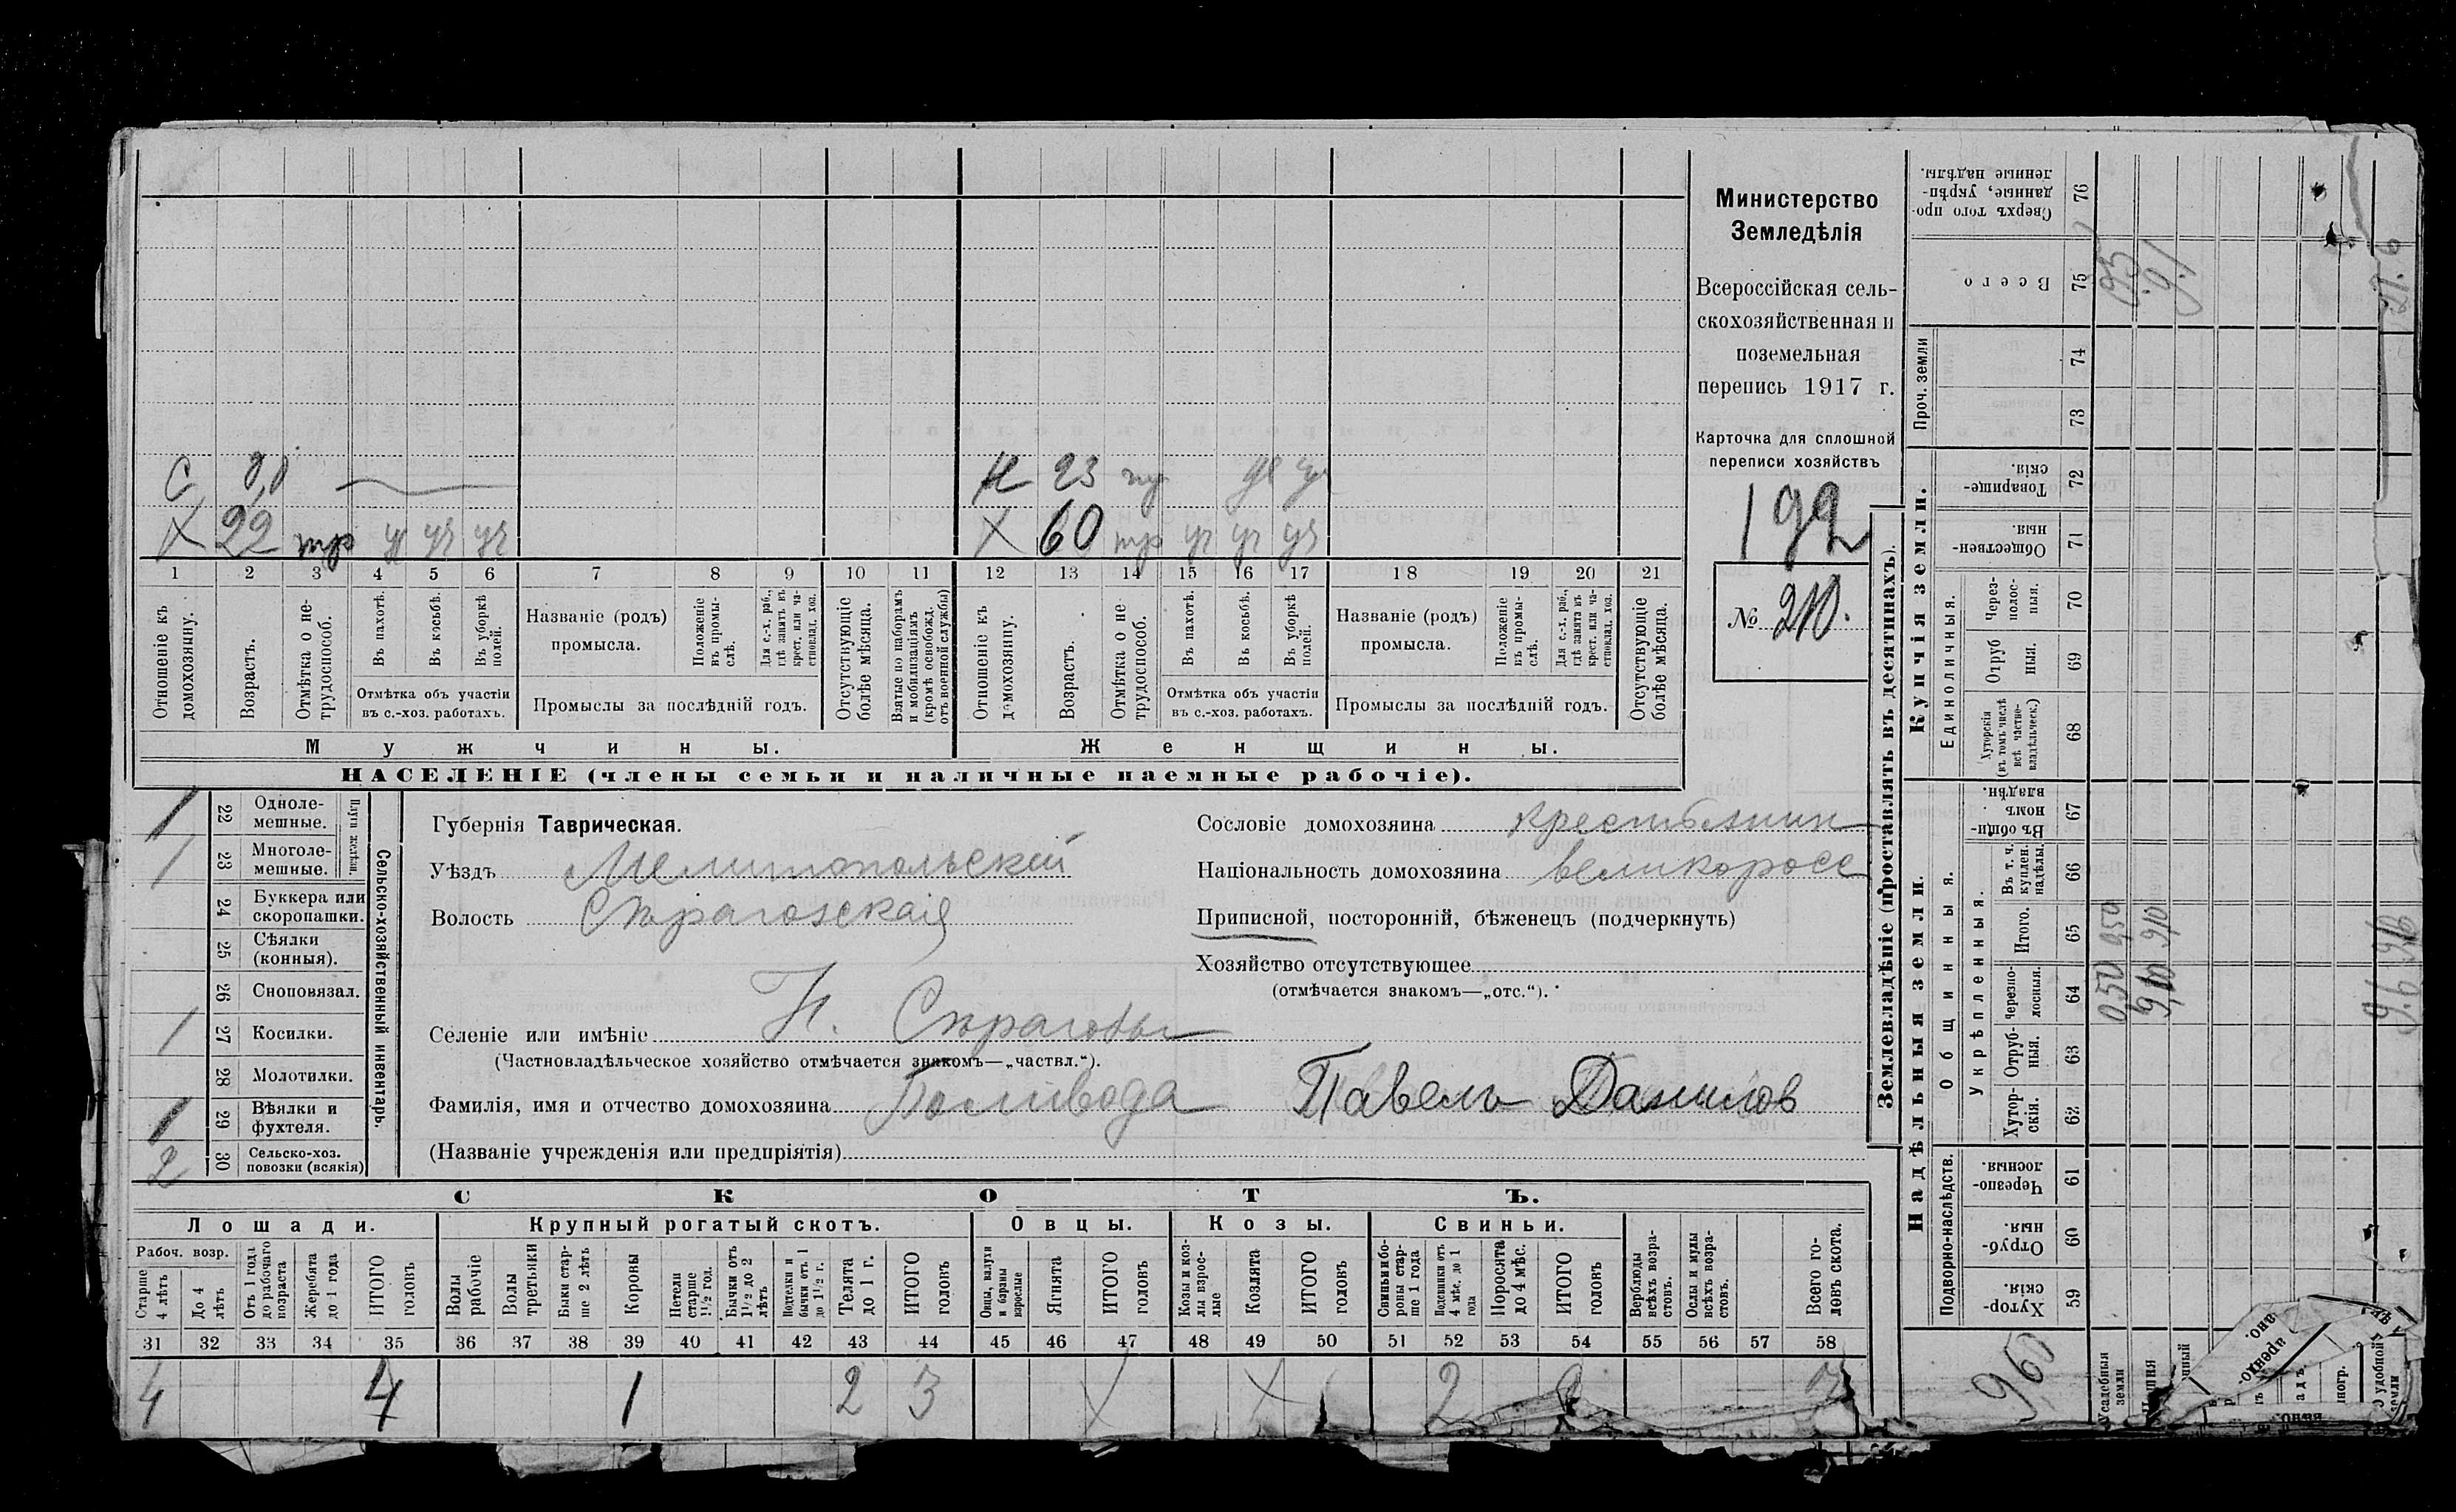 Министерство
Земледѣлія
Всероссійская сель-
скохозяйственная и
поземельная
перепись 1917 г.
Карточка для сплошной
переписи хозяйствъ
192
№ 210.
С
Х 22 тр уч уч уч
23
Х 60 тр уч уч уч
1 2 3 4 5 6 7 8 9 10 11 12 13 14 15 16 17 18 19 20 21
Отношеніе къ домохозяину.
Возрастъ.
Отмѣтка о не-трудоспособ.
Въ пахотѣ.
Въ косьбѣ.
Въ уборкѣ полей.
Отмѣтка объ участіи
въ с.-хоз. работахъ.
Названіе (родъ)
промысла.
Положеніе въ промы-слѣ.
Для с.-х. раб., гдѣ занятъ въ крест. или ча-стновлад. хоз.
Промыслы за послѣдній годъ.
Отсутствующіе болѣе мѣсяца.
Взятые по наборамъ и мобилизаціямъ (кромѣ освобожд. отъ военной службы)
Отношеніе къ домохозяину.
Возрастъ.
Отмѣтка о не-трудоспособ.
Въ пахотѣ.
Въ косьбѣ.
Въ уборкѣ полей.
Отмѣтка объ участіи
въ с.-хоз. работахъ.
Названіе (родъ)
промысла.
Положеніе въ промы-слѣ.
Для с.-х. раб., гдѣ занятъ въ крест. или ча-стновлад. хоз.
Промыслы за послѣдній годъ.
Отсутствующіе болѣе мѣсяца.
Мужчины.
Женщины.
НАСЕЛЕНІЕ (члены семьи и наличные наемные рабочіе).
Сельско-хозяйственный инвентарь.
Плуги желѣзн.
1 22 Одноле-мешные.
1 23 Многоле-мешные.
24 Буккера или скоропашки.
25 Сѣялки (конныя).
26 Сноповязал.
1 27 Косилки.
28 Молотилки.
1 29 Вѣялки и фухтеля.
2 30 Сельско-хоз. повозки (всякія)
Губернія Таврическая.
Уѣздъ Мелитопольский
Волость Сѣрагозская
Селеніе или имѣніе Н. Сѣрагозы
(Частновладѣльческое хозяйство отмѣчается знакомъ—„частвл.“).
Фамилія, имя и отчество домохозяина Поливода Павелъ Данилов
(Названіе учрежденія или предпріятія)
Сословіе домохозяина крестьянин
Національность домохозяина великоросс
Приписной, посторонній, бѣженецъ (подчеркнуть)
Хозяйство отсутствующее
(отмѣчается знакомъ—„отс.“).
СКОТЪ.
Лошади.
Крупный рогатый скотъ.
Овцы.
Козы.
Свиньи.
Рабоч. возр.
Старше 4 лѣтъ
До 4 лѣтъ
Отъ 1 года до рабочаго возраста
Жеребята до 1 года
ИТОГО головъ
Волы рабочіе
Волы третьяки
Быки стар-ше 2 лѣтъ
Коровы
Нетели старше 1½ год.
Бычки отъ 1½ до 2 лѣтъ
Подтелки и бычки отъ 1 до 1½ г.
Телята до 1 г.
ИТОГО головъ
Овцы, валухи и бараны взрослые
Ягнята
ИТОГО головъ
Козы и коз-лы взрос-лые
Козлята
ИТОГО головъ
Свиньи и бо-ровы стар-ше 1 года
Подсвинки отъ 4 мѣс. до 1 года
Поросята до 4 мѣс.
ИТОГО головъ
Верблюды всѣхъ возра-стовъ.
Ослы и мулы всѣхъ возра-стовъ.
Всего го-ловъ скота.
31 32 33 34 35 36 37 38 39 40 41 42 43 44 45 46 47 48 49 50 51 52 53 54 55 56 57 58
4 4 1 2 3 Х Х 2
Землевладѣніе (проставлять въ десятинахъ).
Надѣльныя земли.
Купчія земли.
Проч. земли
Подворно-наслѣдств.
Общинныя.
Укрѣпленныя.
Единоличныя.
Сверхъ того про-данные, укрѣп-ленные надѣлы. 76
Всего 75
74
73
Товарище-скія. 72
Обществен-ныя. 71
Через-полос-ныя. 70
Отруб-ныя. 69
Хуторскія (въ томъ числѣ всѣ частно-владѣльческ.) 68
Въ общин-номъ владѣн. 67
Въ т. ч. куплен. надѣлы. 66
Итого. 65
Черезпо-лосныя. 64
Отруб-ныя. 63
Хутор-скія. 62
Черезпо-лосныя. 61
Отруб-ныя. 60
Хутор-скія. 59
Усадебныя земли
050 950
910 910
9,1
96 96
960